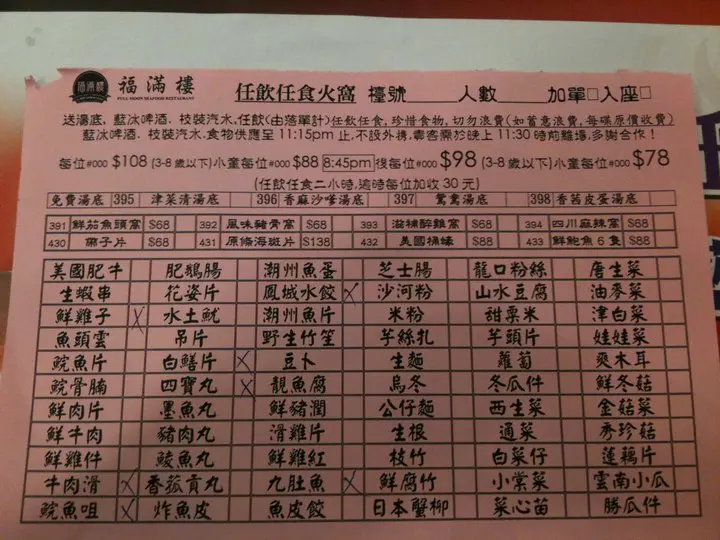 福滿樓 福滿樓 任飲任食火窩 檯號 人數 加單□入座□
FULL MOON SEAFOOD RESTAURANT
送湯底, 藍冰啤酒, 枝裝汽水,任飲(由落單計)任飲任食,珍惜食物,切勿浪費(如蓄意浪費,每碟原價收費)
藍冰啤酒, 枝裝汽水,食物供應至 11:15pm 止,不設外携,壽客需於晚上 11:30 時前離場,多謝合作!
每位#000 $108 (3-8 歲以下)小童每位#000 $88 8:45pm 後每位#000 $98 (3-8 歲以下)小童每位#000 $78
(任飲任食二小時,逾時每位加收 30 元)
免費湯底 395 津菜清湯底 396 香麻沙嗲湯底 397 鴛鴦湯底 398 香茜皮蛋湯底
391 鮮茄魚頭窩 $68 392 風味豬骨窩 $68 393 滋補醉雞窩 $68 394 四川麻辣窩 $68
430 帶子片 $68 431 原條海斑片 $138 432 美國桶蠔 $88 433 鮮鮑魚 6 隻 $88
美國肥牛 肥鵝腸 潮州魚蛋 芝士腸 龍口粉絲 唐生菜
生蝦串 花姿片 鳳城水餃 x 沙河粉 山水豆腐 油麥菜
鮮雞子 x 水土魷 潮州魚片 米粉 甜粟米 津白菜
魚頭雲 吊片 野生竹笙 芋絲扎 芋頭片 娃娃菜
鯇魚片 白鱔片 x 豆卜 生麵 蘿蔔 爽木耳
鯇骨腩 四寶丸 x 靚魚腐 烏冬 冬瓜件 鮮冬菇
鮮肉片 墨魚丸 鮮豬潤 公仔麵 西生菜 金菇菜
鮮牛肉 豬肉丸 滑雞片 生根 通菜 秀珍菇
鮮雞件 鯪魚丸 鮮雞紅 枝竹 白菜仔 蓮藕片
牛肉滑 x 香菰貢丸 九肚魚 x 鮮腐竹 小棠菜 雲南小瓜
鯇魚咀 x 炸魚皮 魚皮餃 日本蟹柳 菜心苗 勝瓜件